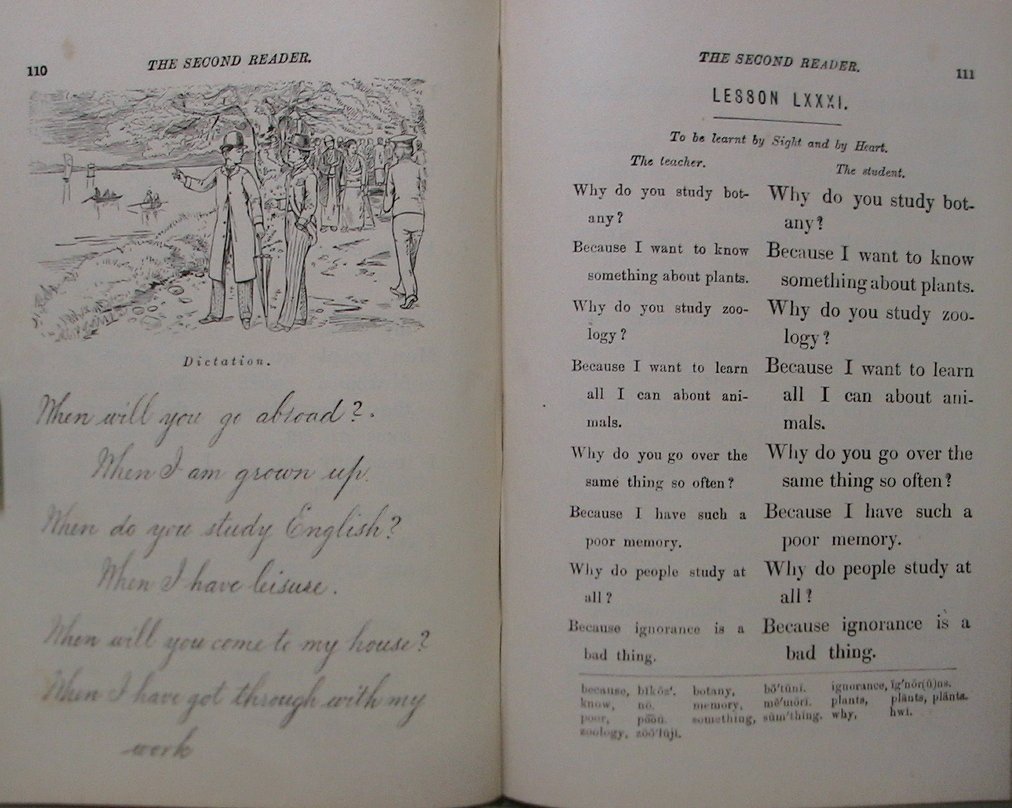 110
THE SECOND READER.
Dictation.
When will you go abroad?
When I am grown up.
When do you study English?
When I have leisure.
When will you come to my house?
When I have got through with my
work
THE SECOND READER.
111
LESSON LXXXI.
To be learnt by Sight and by Heart.
The teacher.
Why do you study bot-
any?
Because I want to know
something about plants.
Why do you study zoo-
logy?
Because I want to learn
all I can about ani-
mals.
Why do you go over the
same thing so often?
Because I have such a
poor memory.
Why do people study at
all?
Because ignorance is a
bad thing.
The student.
Why do you study bot-
any?
Because I want to know
something about plants.
Why do you study zoo-
logy?
Because I want to learn
all I can about ani-
mals.
Why do you go over the
same thing so often?
Because I have such a
poor memory.
Why do people study at
all?
Because ignorance is a
bad thing.
because, botany, ignorance,
know, nō. memory, plants,
poor, something, why, hwī.
zoology,